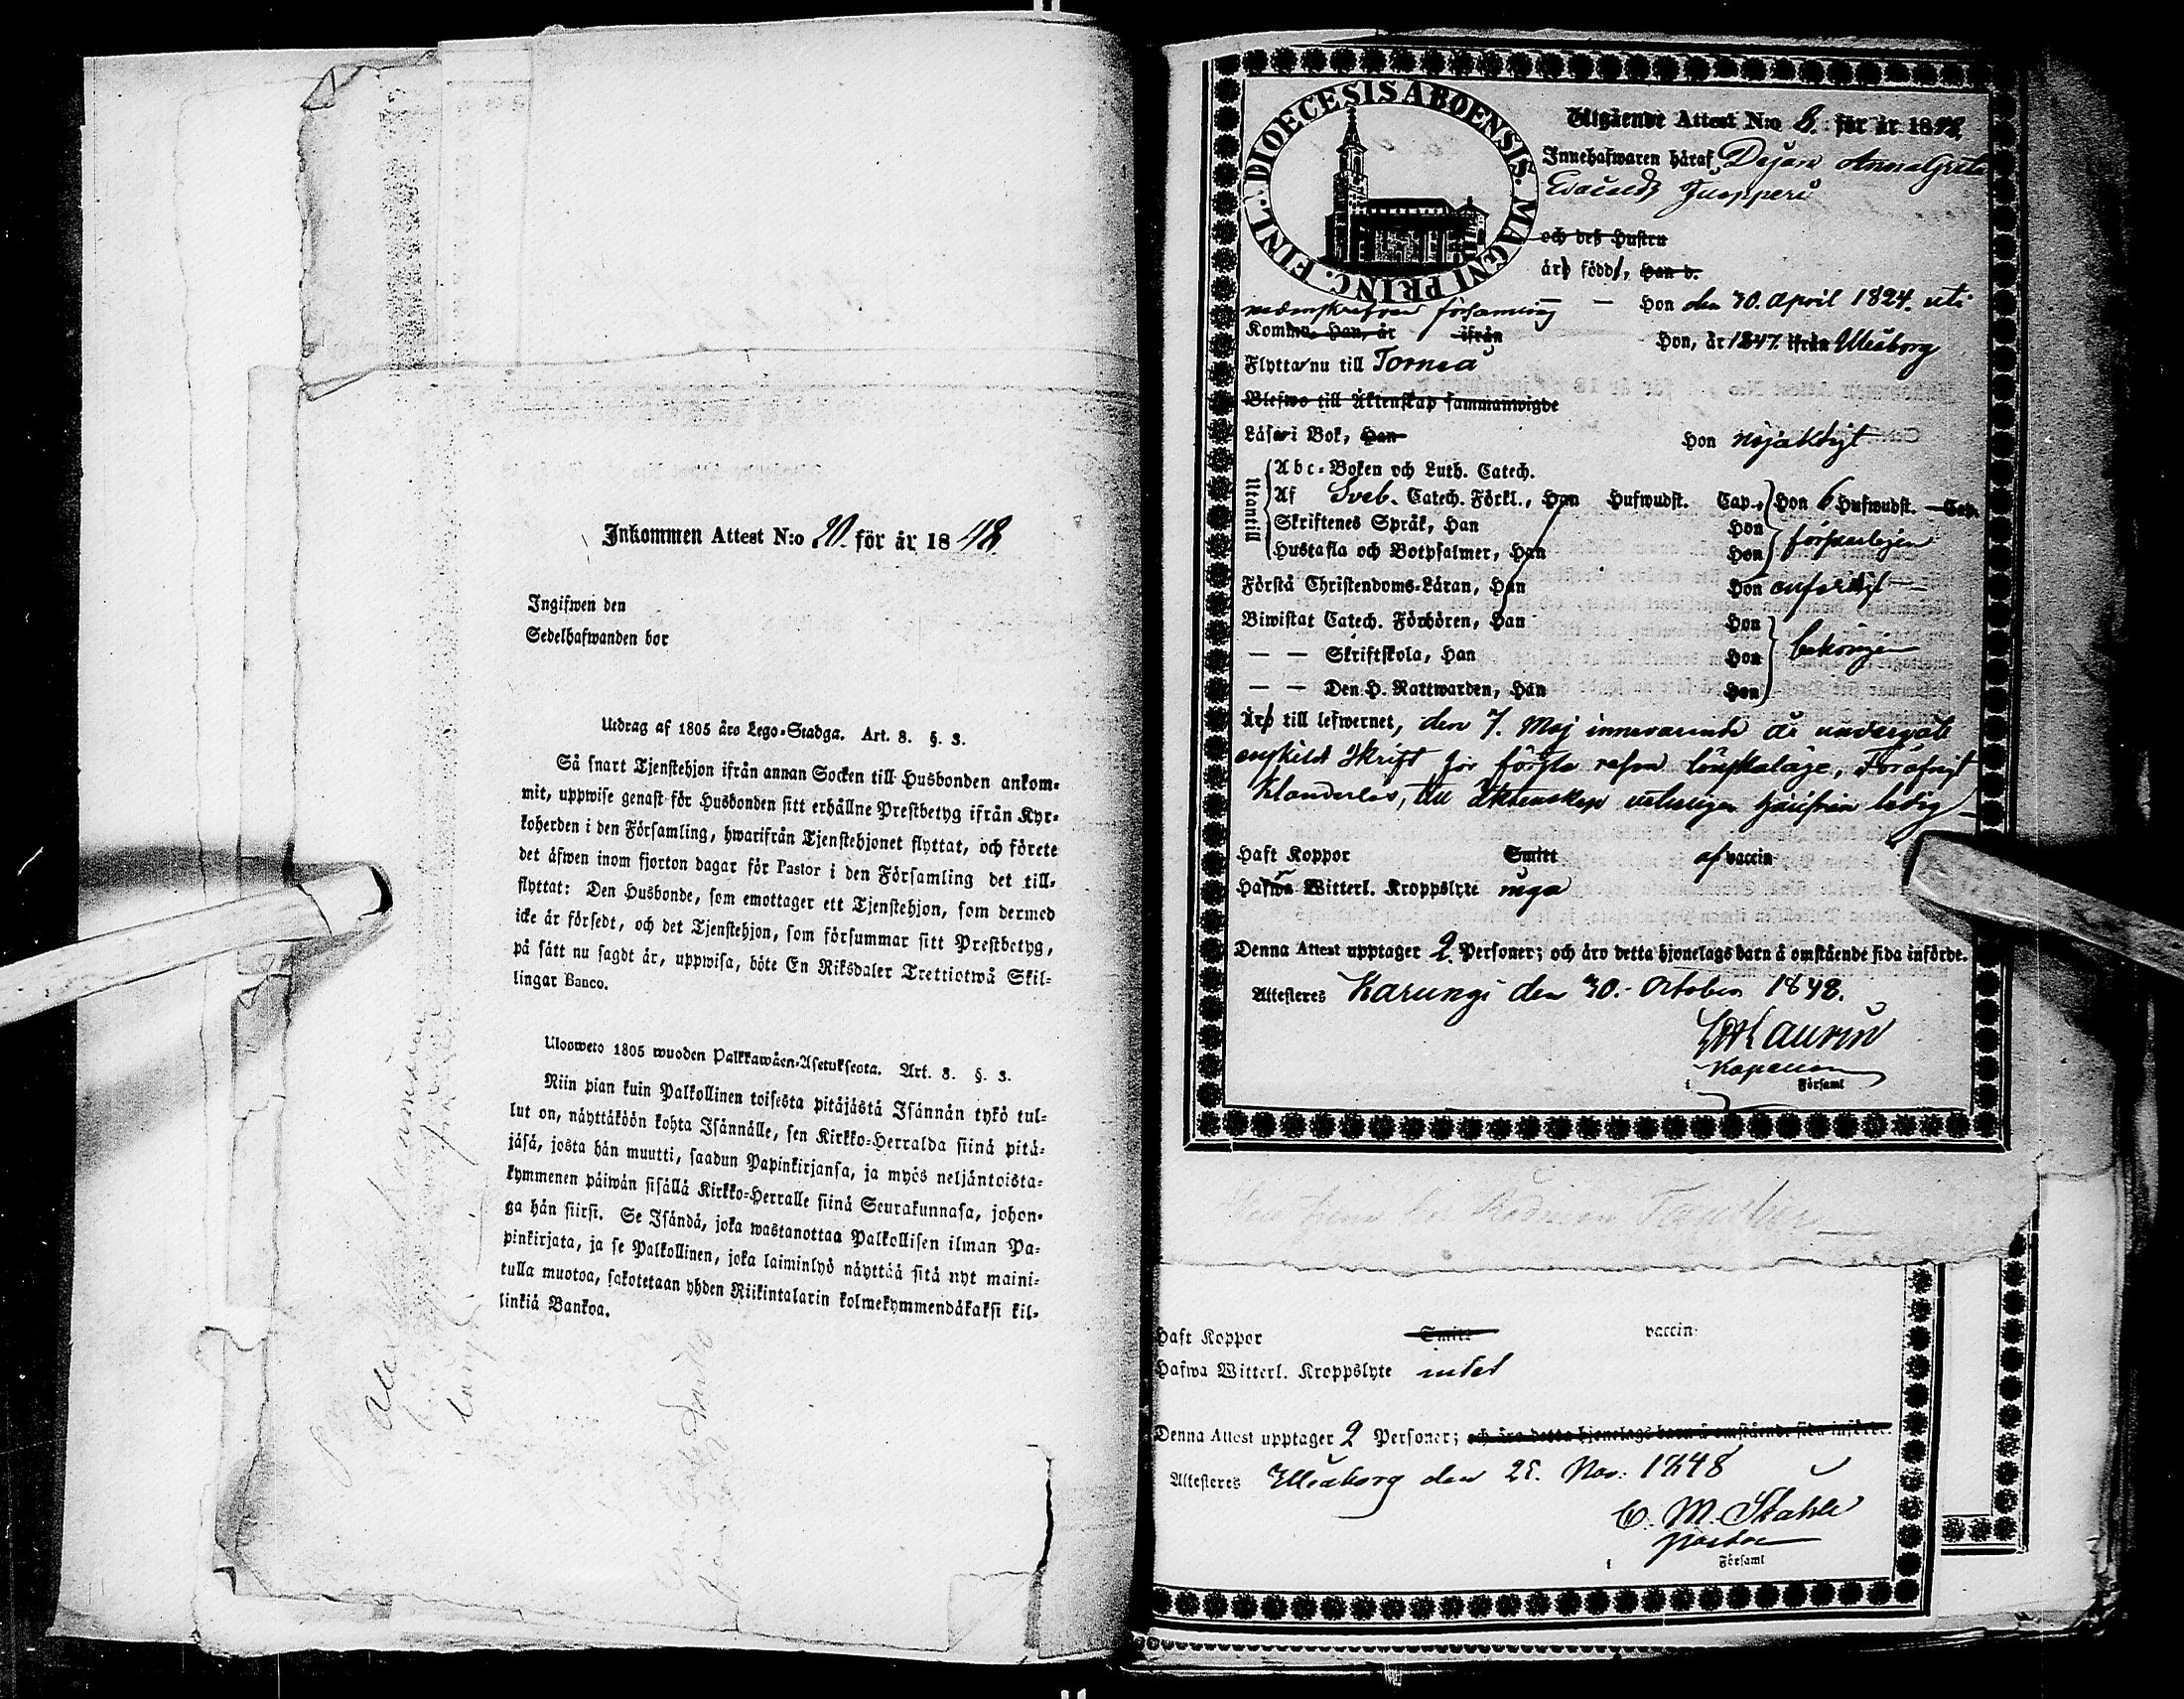 Inkommen Attest N:o 20. för år 1848.
Ingifwen den
Sedelhafwanden bor
Utdrag af 1805 års Lego-Stadga. Art. 8. §. 3.
Så snart Tjenstehjon ifrån annan Socken till Husbonden ankom-
mit, uppwise genast för Husbonden sitt erhållne Prestbetyg ifrån Kyr-
koherden i den Församling, hwarifrån Tjenstehjonet flyttat, och förete
det äfwen inom fjorton dagar för Pastor i den Församling det till-
flyttat: Den Husbonde, som emottager ett Tjenstehjon, som dermed
icke är försedt, och det Tjenstehjon, som försummar sitt Prestbetyg,
på sätt nu sagdt är, uppwisa, böte En Riksdaler Trettiotwå Skil-
lingar Banco.
Ulosweto 1805 wuoden Palkkawäen-Asetuksesta. Art. 8. §. 3.
Niin pian kuin Palkollinen toisesta pitäjästä Isännän tykö tul-
lut on, näyttäköön kohta Isännälle, sen Kirkko-Herralda siinä pitä-
jäsä, josta hän muutti, saadun Papinkirjansa, ja myös neljäntoista-
kymmenen päiwän sisällä Kirkko-Herralle siinä Seurakunnasa, johon-
ga hän siirsi. Se Isändä, joka wastanottaa Palkollisen ilman Pa-
pinkirjata, ja se Palkollinen, joka laiminlyö näyttää sitä nyt maini-
tulla muotoa, sakotetaan yhden Riikintalarin kolmekymmendäkaksi kil-
linkiä Bankoa.
DIOECESIS ABOENSIS. MAGNI PRINC. FINL.
Utgående Attest N:o 8. för år 1848.
Innehafwaren häraf Pejan Anna Greta
Juopperi
och deß Hustru
äro född, Han d.
församling — Hon den 30. April 1824. uti
Komme, Han, år ifrån Hon, år 1847. ifrån Uleåborg
Flytta nu till Torneå
Blefwo till Äktenskap sammanwigde
Läser i Bok, Han Hon nöjaktigt
Utantill
Abc-Boken och Luth. Catech.
Af Sveb. Catech. Förkl., Han Hufwudst. Cap., Hon 6 Hufwudst. — Cap.
Skriftenes Språk, Han Hon
Hustafla och Botpsalmer, Han Hon försvarligen
Första Christendoms-Läran, Han Hon enfaldigt —
Biwistat Catech. Förhören, Han Hon
— — Skriftskola, Han Hon behörigen
— — Den H. Nattwarden, Han Hon
Äro till lefwernet, den 7. Maj innevarande år undergått
enskildt Skrift för första resan lönskaläge, För öfrigt
klanderlös, till äktenskap ledig
Haft Koppor Smitt af vaccin
Hafwa Witterl. Kroppslyte inga
Denna Attest upptager 2. Personer; och äro detta hjonelags barn å omstående sida införde.
Attesteres Karungi den 30. October 1848.
Laurin
Kapellan
i Församl
Haft Koppor Smitt vaccin
Hafwa Witterl. Kroppslyte intet
Denna Attest upptager 2 Personer; och äro detta hjonelags barn å omstående sida införde.
Attesteres Uleåborg den 25. Nov. 1848
C. M. Stahle
Pastor
i Församl